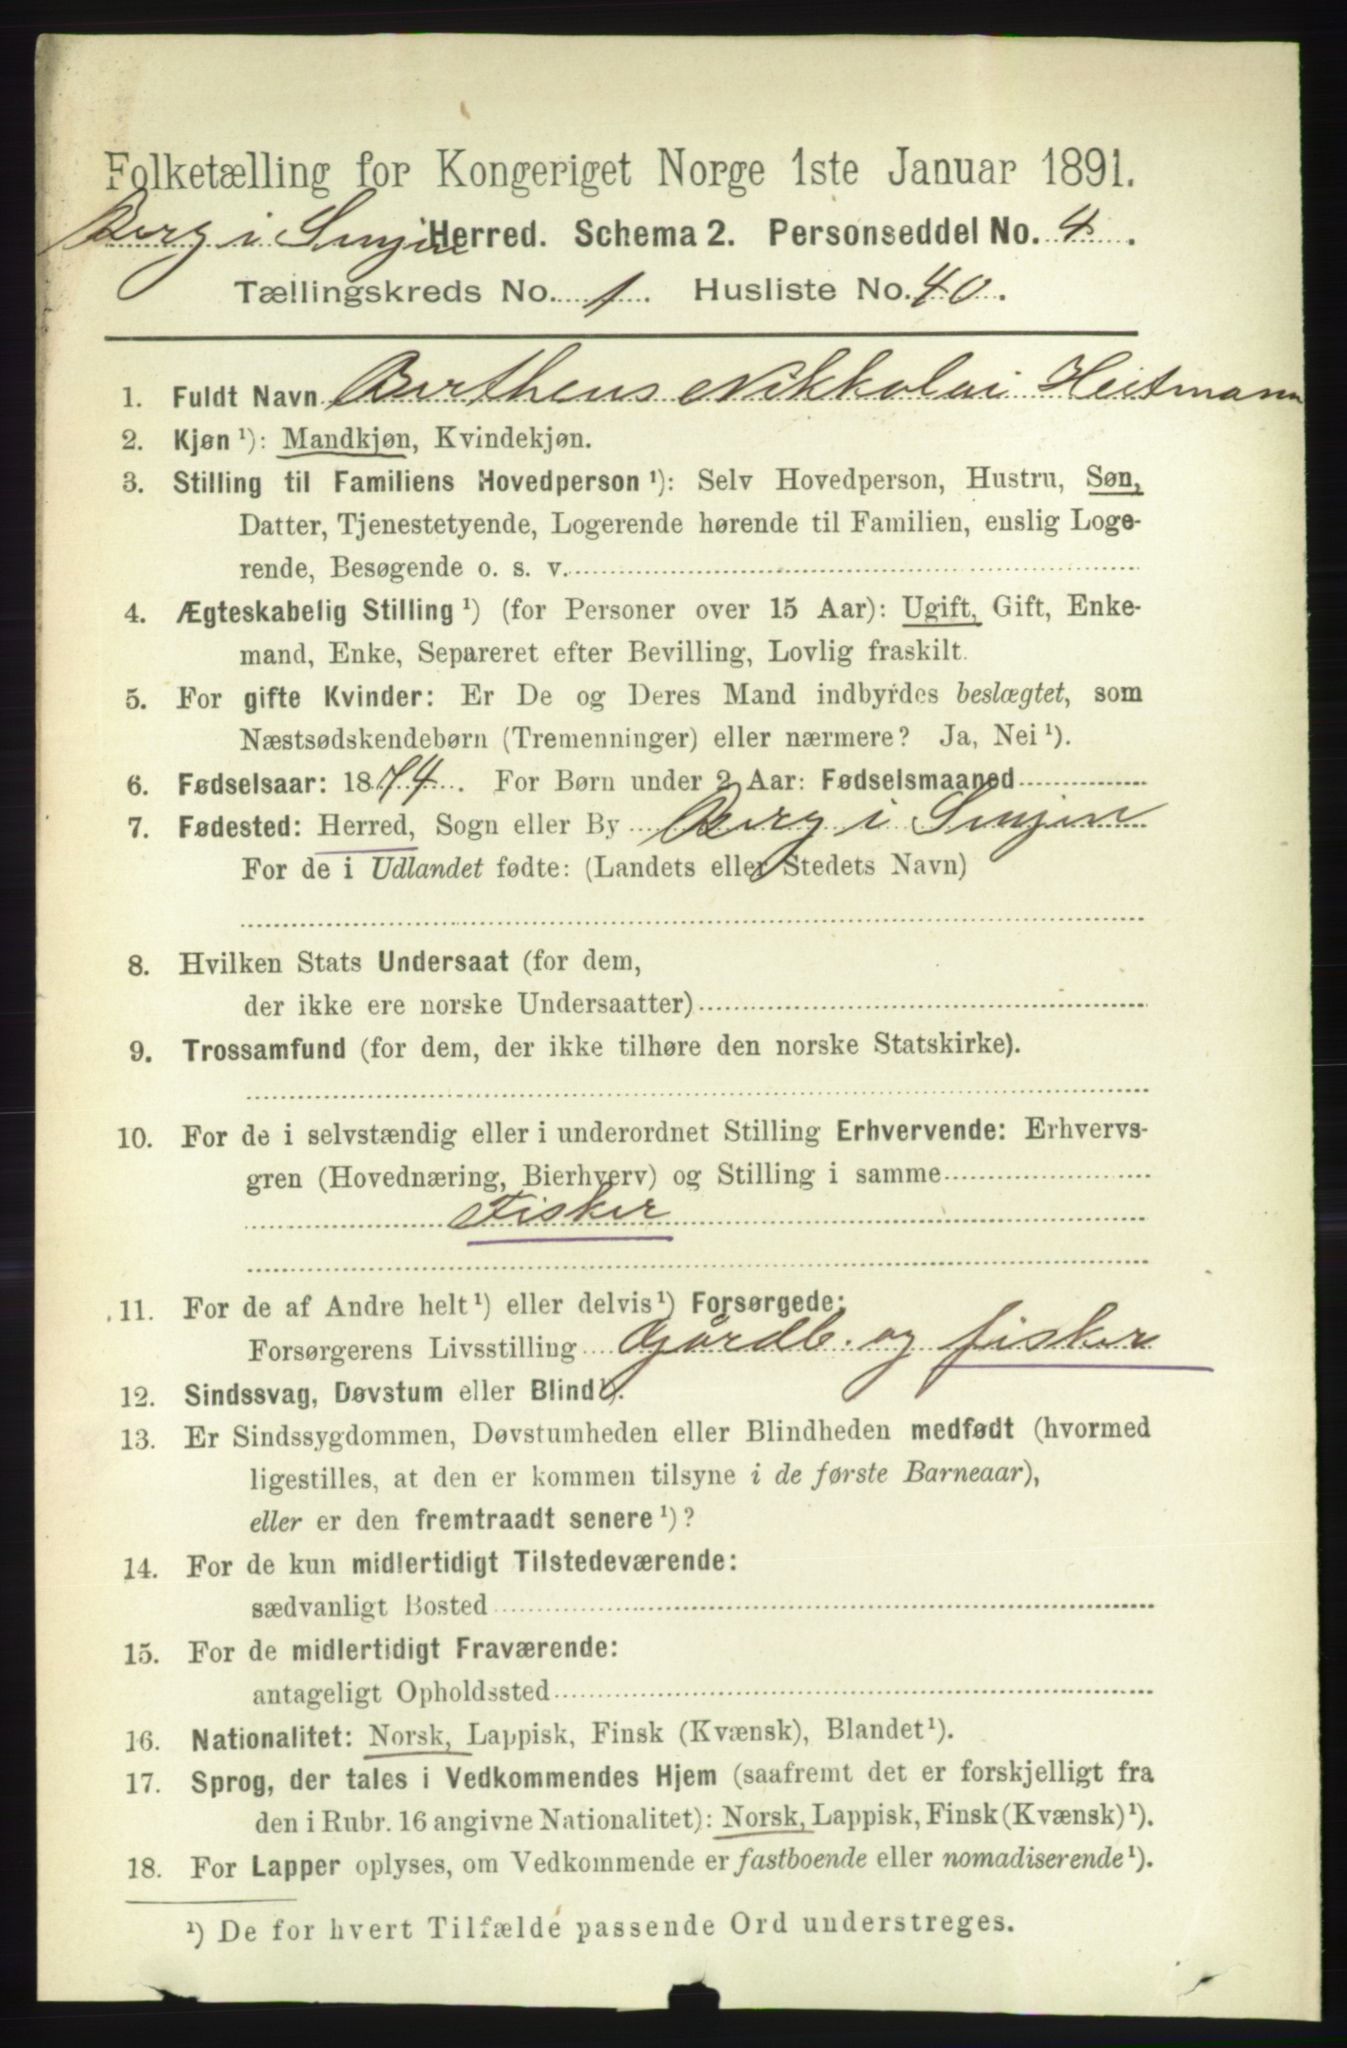 Folketælling for Kongeriget Norge 1ste Januar 1891.
Berg i Senjen Herred. Schema 2. Personseddel No. 4.
Tællingskreds No. 1. Husliste No. 40.
1. Fuldt Navn Bertheus Nikkolai Heitmann
2. Kjøn ¹): Mandkjøn, Kvindekjøn.
3. Stilling til Familiens Hovedperson ¹): Selv Hovedperson, Hustru, Søn,
Datter, Tjenestetyende, Logerende hørende til Familien, enslig Loge-
rende, Besøgende o. s. v.
4. Ægteskabelig Stilling ¹) (for Personer over 15 Aar): Ugift, Gift, Enke-
mand, Enke, Separeret efter Bevilling, Lovlig fraskilt.
5. For gifte Kvinder: Er De og Deres Mand indbyrdes beslægtet, som
Næstsødskendebørn (Tremenninger) eller nærmere? Ja, Nei ¹).
6. Fødselsaar: 1874. For Børn under 2 Aar: Fødselsmaaned
7. Fødested: Herred, Sogn eller By Berg i Senjen
For de i Udlandet fødte: (Landets eller Stedets Navn)
8. Hvilken Stats Undersaat (for dem,
der ikke ere norske Undersaatter)
9. Trossamfund (for dem, der ikke tilhøre den norske Statskirke).
10. For de i selvstændig eller i underordnet Stilling Erhvervende: Erhvervs-
gren (Hovednæring, Bierhverv) og Stilling i samme
Fisker
11. For de af Andre helt ¹) eller delvis ¹) Forsørgede:
Forsørgerens Livsstilling Gårdb. og fisker
12. Sindssvag, Døvstum eller Blind ¹).
13. Er Sindssygdommen, Døvstumheden eller Blindheden medfødt (hvormed
ligestilles, at den er kommen tilsyne i de første Barneaar),
eller er den fremtraadt senere ¹)?
14. For de kun midlertidigt Tilstedeværende:
sædvanligt Bosted
15. For de midlertidigt Fraværende:
antageligt Opholdssted
16. Nationalitet: Norsk, Lappisk, Finsk (Kvænsk), Blandet ¹).
17. Sprog, der tales i Vedkommendes Hjem (saafremt det er forskjelligt fra
den i Rubr. 16 angivne Nationalitet): Norsk, Lappisk, Finsk (Kvænsk) ¹).
18. For Lapper oplyses, om Vedkommende er fastboende eller nomadiserende ¹).
¹) De for hvert Tilfælde passende Ord understreges.